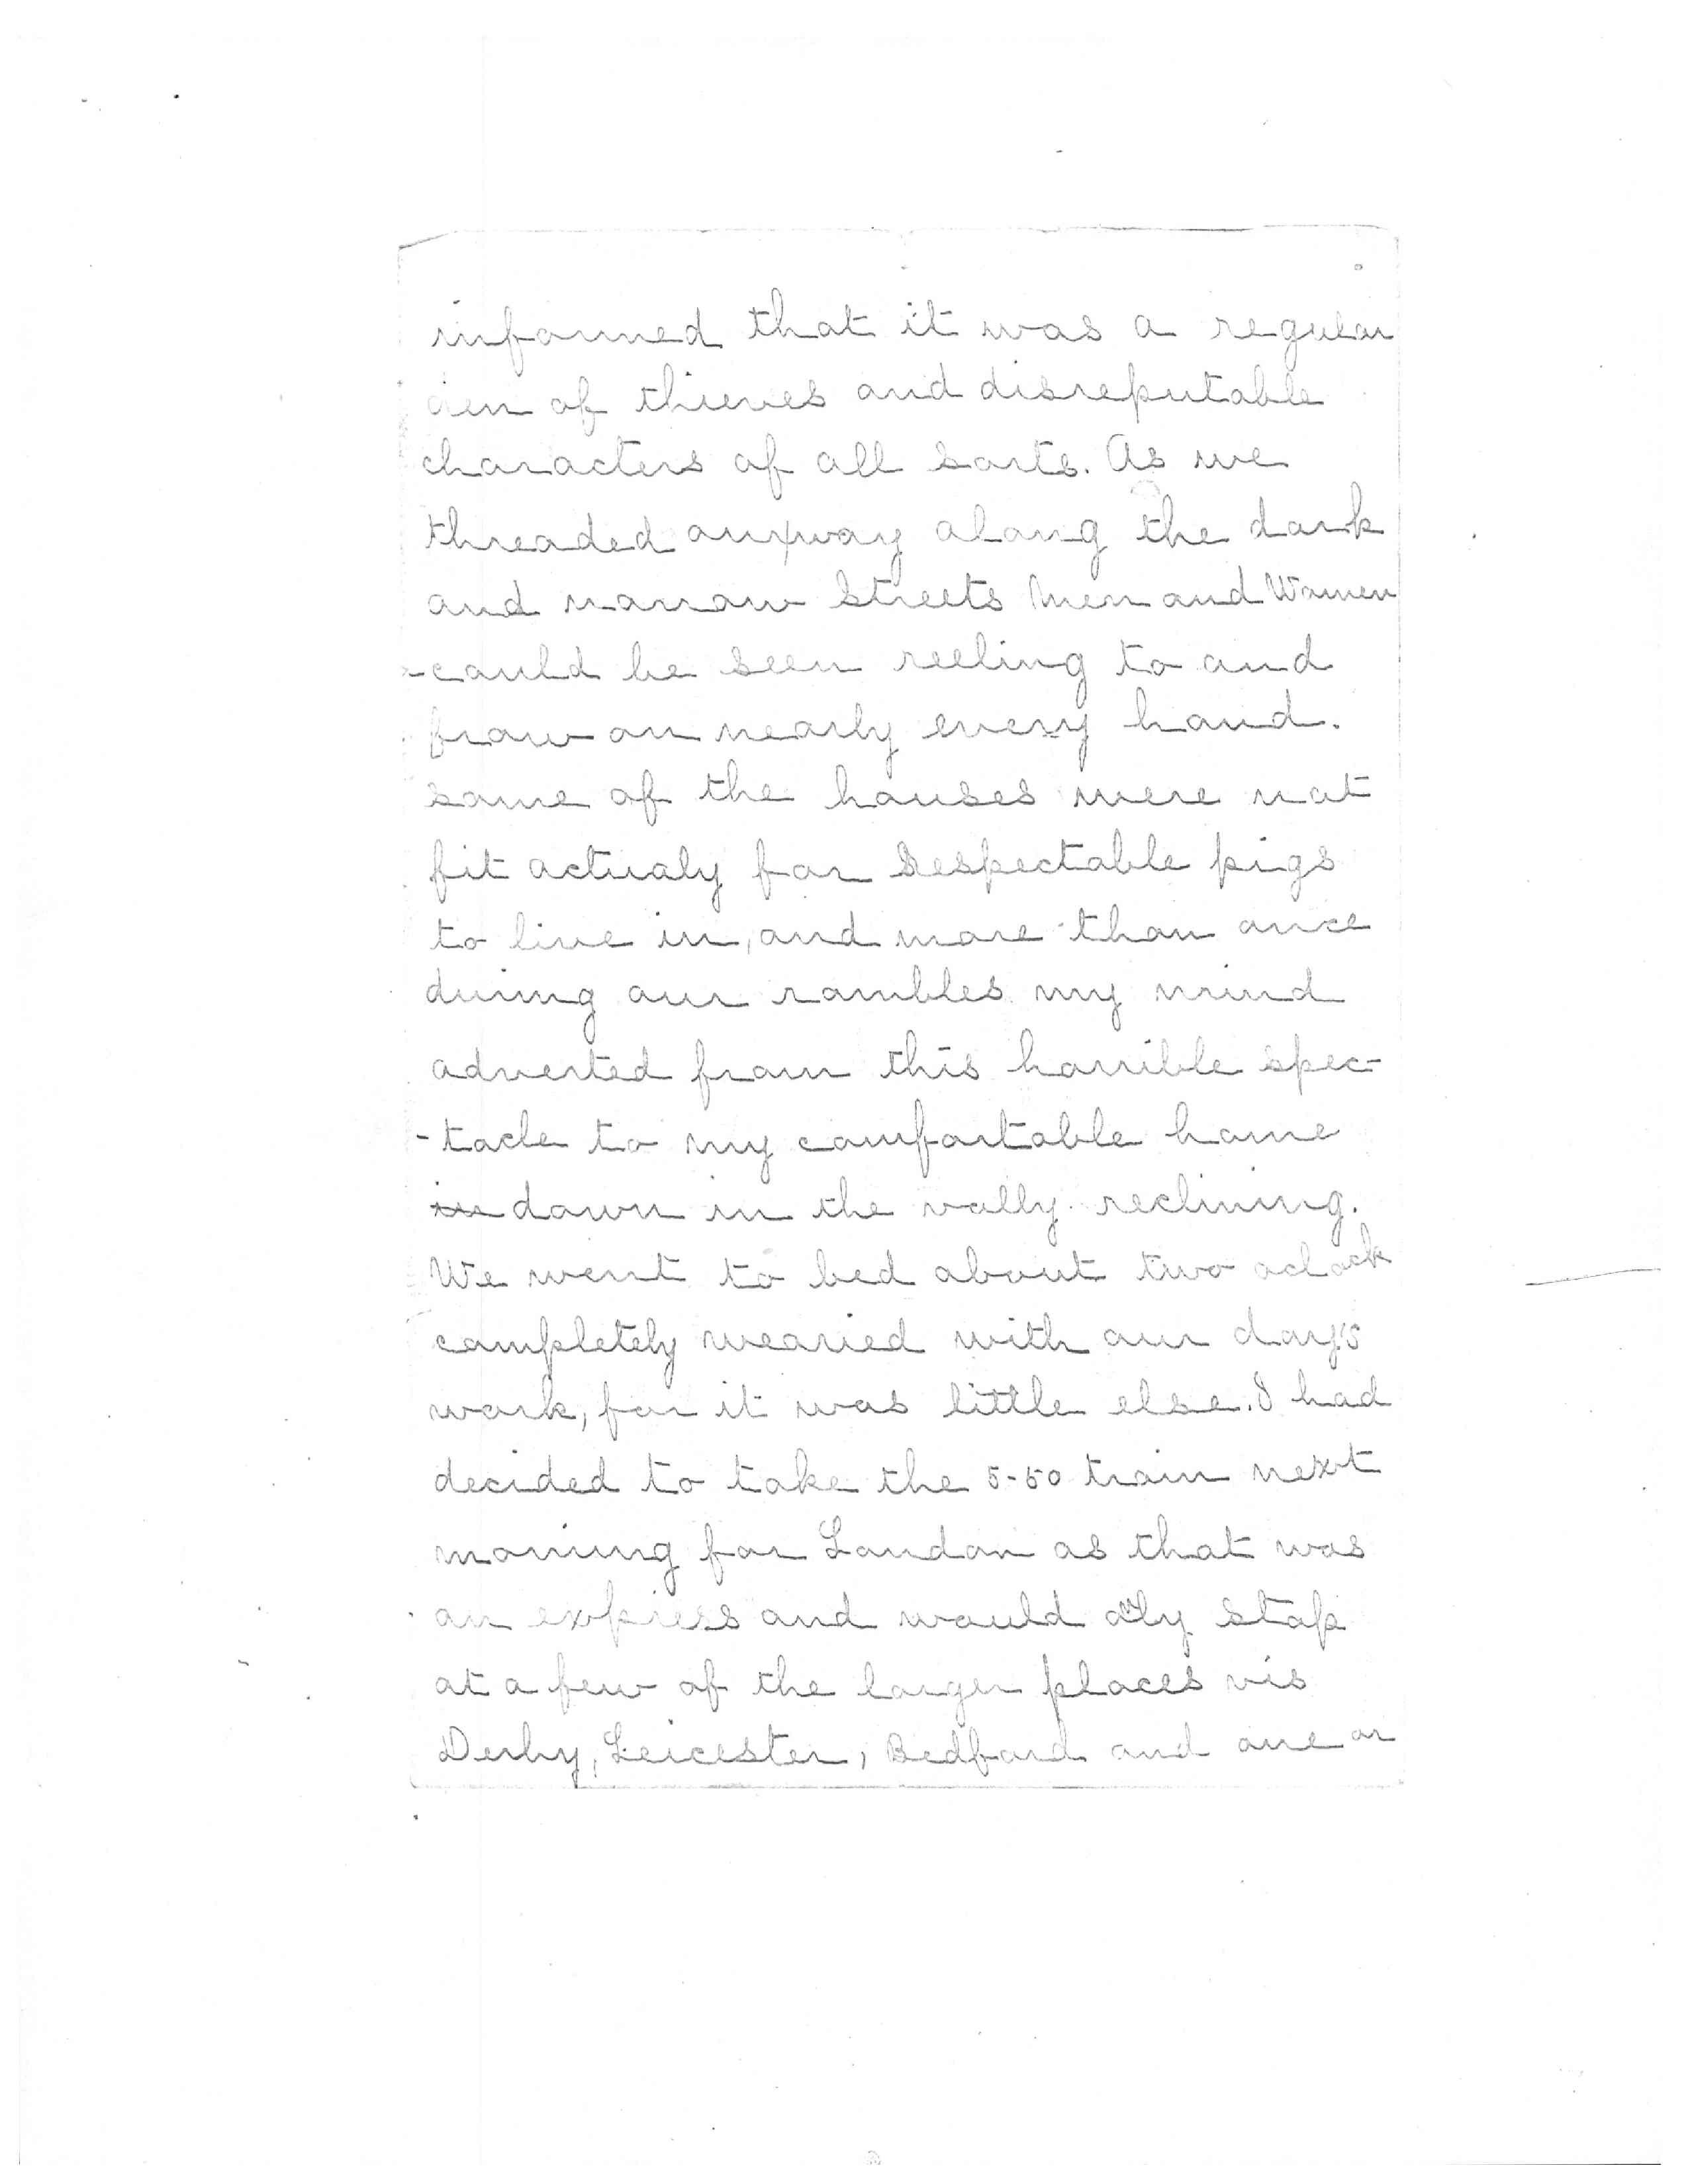 informed that it was a regular
den of thieves and disreputable
characters of all sorts. As we
threaded our way along the dark
and narrow streets Men and Women
could be seen reeling to and
frow on nearly every hand.
some of the houses were not
fit actualy for respectable pigs
to live in, and more than once
during our rambles my mind
adverted from this horrible spec-
-tacle to my comfortable home
in down in the vally reclining.
We went to bed about two oclock
completely wearied with our day's
work, for it was little else. I had
decided to take the 5-50 train next
morning for London as that was
an express and would only stop
at a few of the larger places vis
Derby, Leicester, Bedford and one or